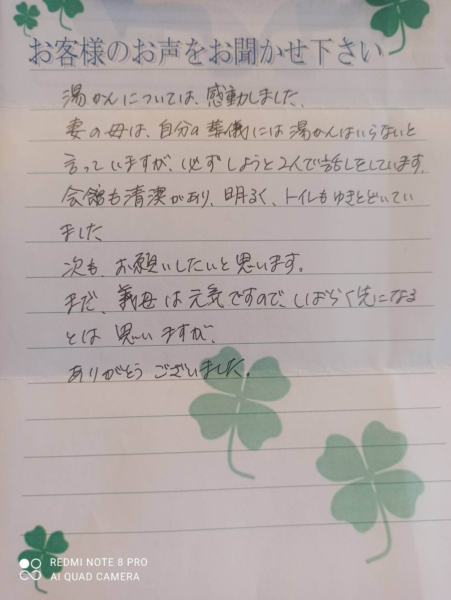 お客様のお声をお聞かせ下さい
湯かんについては、感動しました。
妻の母は、自分の葬儀には湯かんはいらないと
言っていますが、必ずしようと2人で話しをしています。
会館も清潔があり、明るく、トイレもゆきとどいてい
ました
次も、お願いしたいと思います。
まだ、義母は元気ですので、しばらく先になる
とは思いますが、
ありがとうございました。
REDMI NOTE 8 PRO
AI QUAD CAMERA